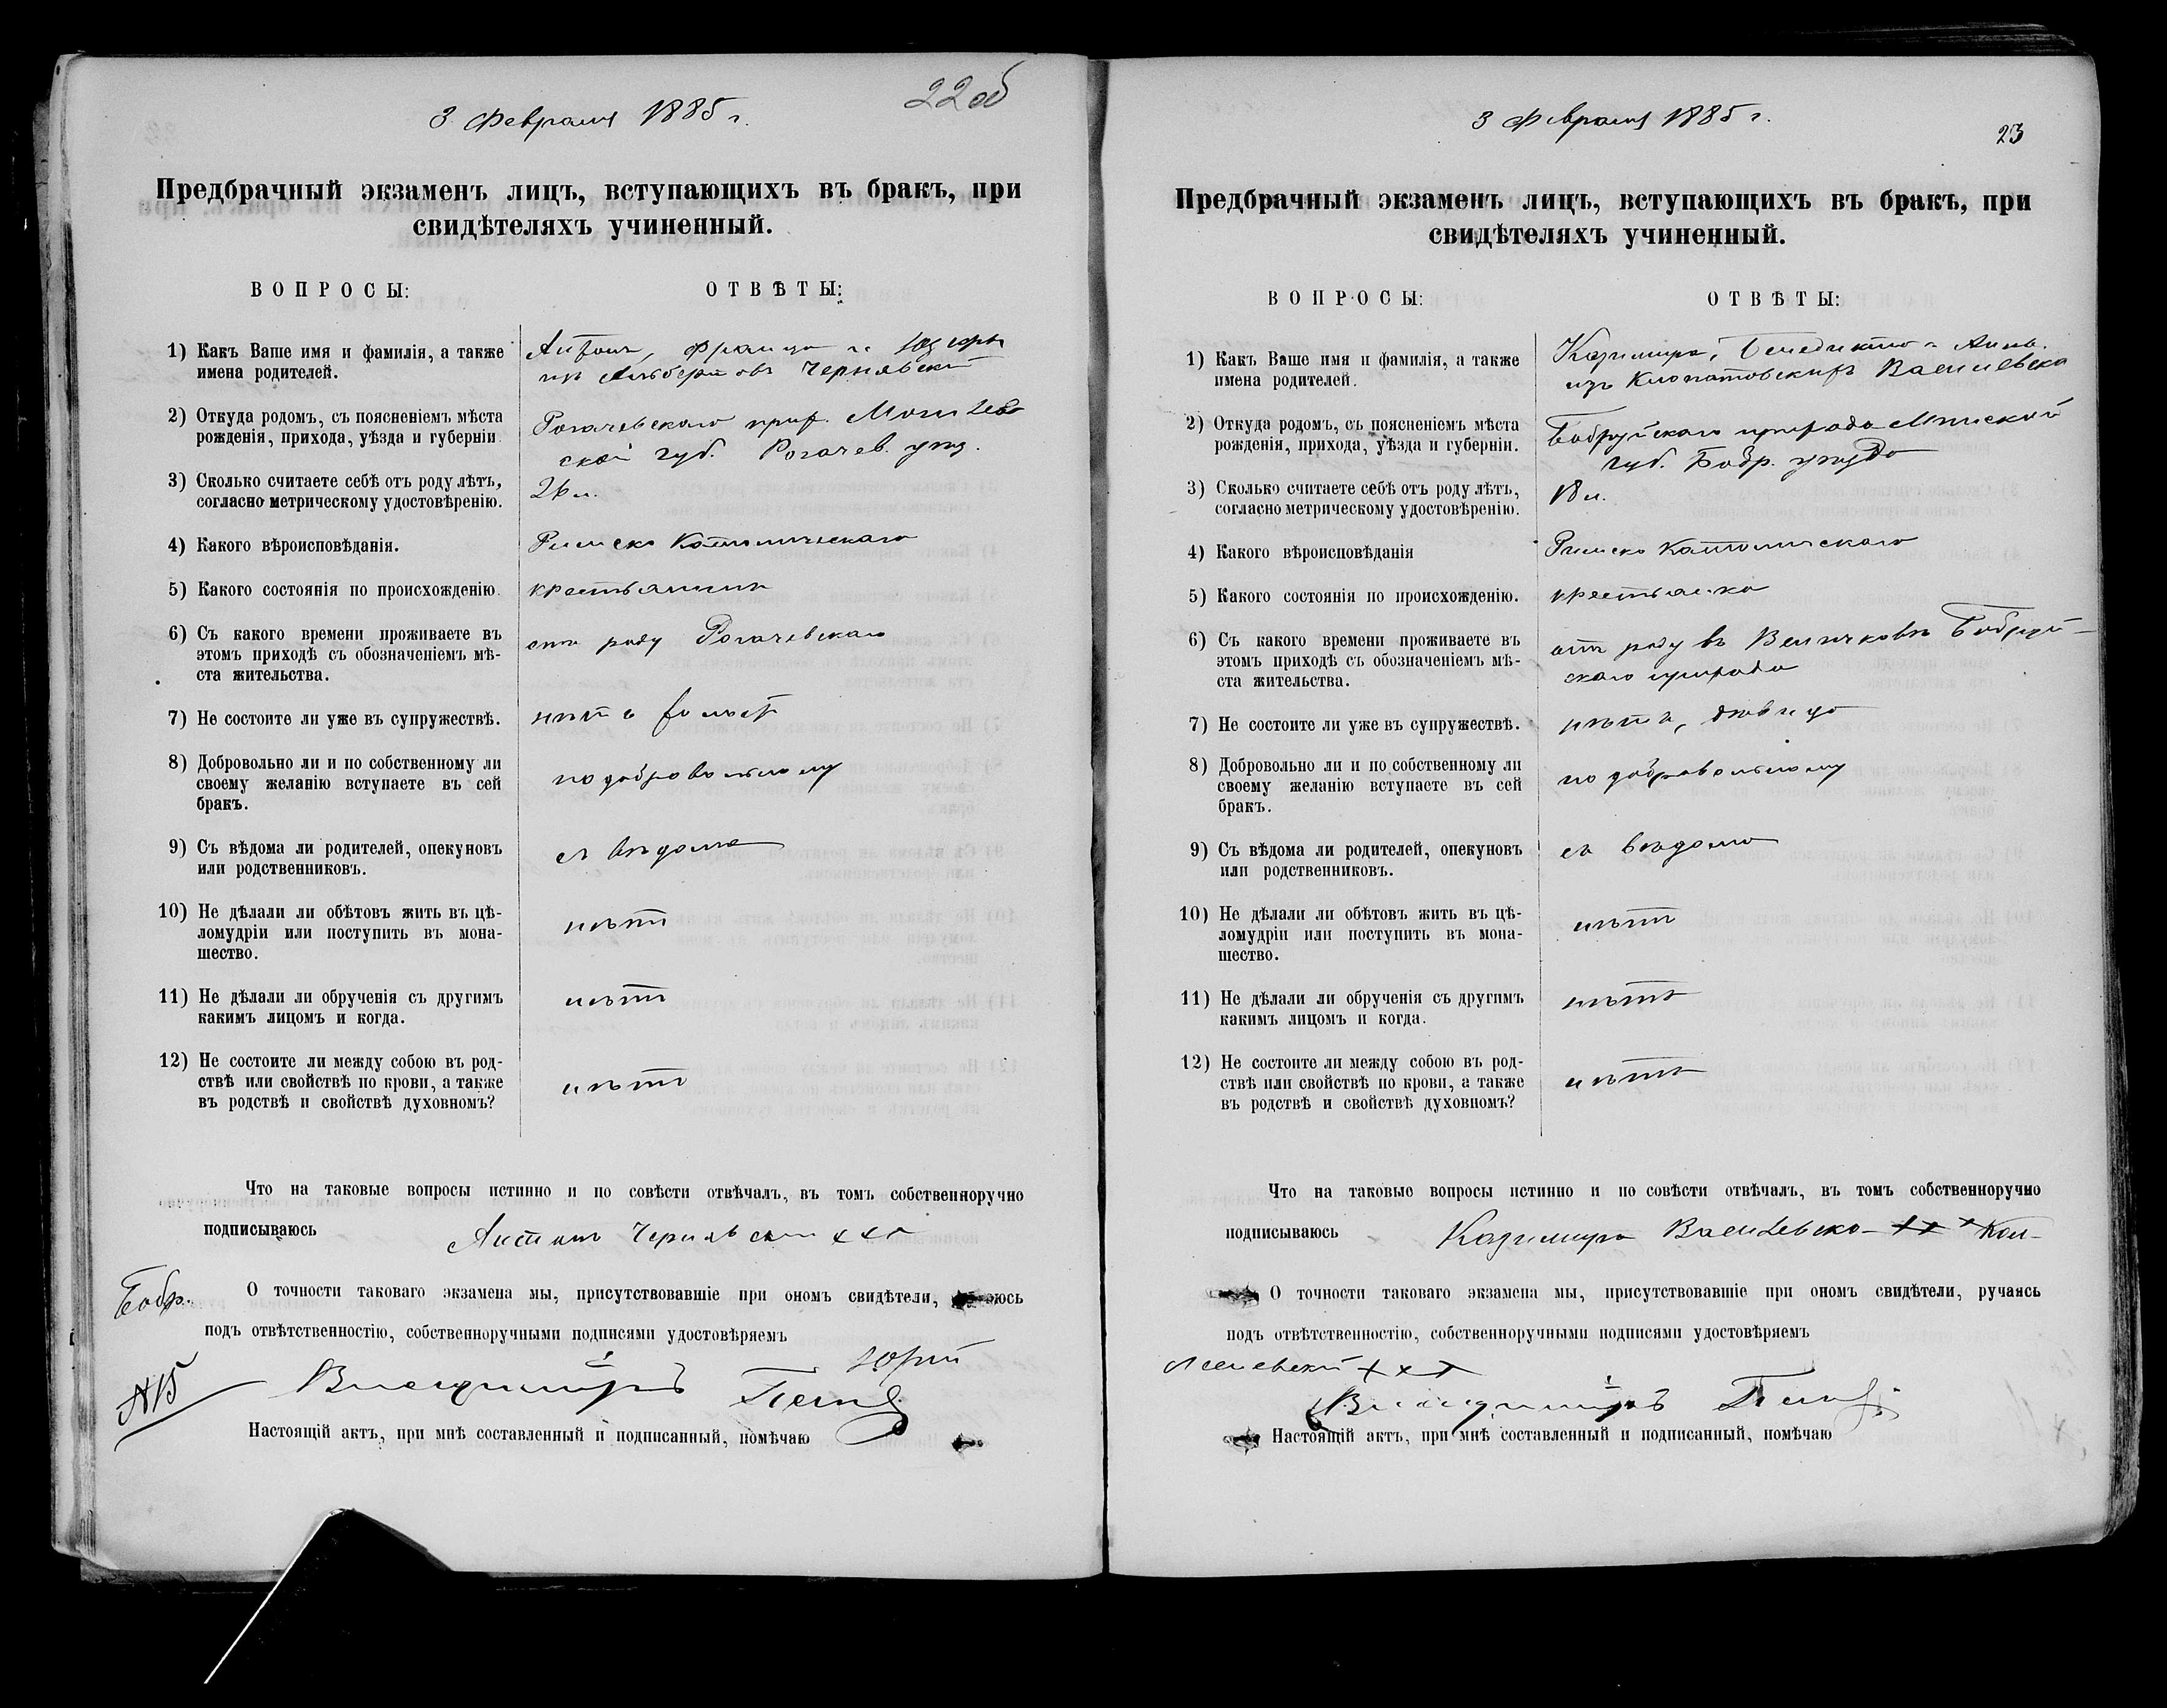 22 об
3 Февраля 1885 г.
Предбрачный экзаменъ лицъ, вступающихъ въ бракъ, при
свидѣтеляхъ учиненный.
ВОПРОСЫ:
ОТВѢТЫ:
1) Какъ Ваше имя и фамилія, а также
имена родителей.
Антонъ, Франца и
изъ Чернявскій
2) Откуда родомъ, съ поясненіемъ мѣста
рожденія, прихода, уѣзда и губерніи.
Рогачевскаго прих. Могилев
ской губ. Рогачев. уѣз.
3) Сколько считаете себѣ отъ роду лѣтъ,
согласно метрическому удостовѣренію.
26 л.
4) Какого вѣроисповѣданія.
Римско Католическаго
5) Какого состоянія по происхожденію.
крестьянинъ
6) Съ какого времени проживаете въ
этомъ приходѣ съ обозначеніемъ мѣ-
ста жительства.
отъ роду Рогачевскаго
7) Не состоите ли уже въ супружествѣ.
нѣтъ
8) Добровольно ли и по собственному ли
своему желанію вступаете въ сей
бракъ.
по добровольному
9) Съ вѣдома ли родителей, опекуновъ
или родственниковъ.
съ вѣдома
10) Не дѣлали ли обѣтовъ жить въ цѣ-
ломудріи или поступить въ мона-
шество.
нѣтъ
11) Не дѣлали ли обрученія съ другимъ
какимъ лицомъ и когда.
нѣтъ
12) Не состоите ли между собою въ род-
ствѣ или свойствѣ по крови, а также
въ родствѣ и свойствѣ духовномъ?
нѣтъ
Что на таковые вопросы истинно и по совѣсти отвѣчалъ, въ томъ собственноручно
подписываюсь Антонъ Чернявскій xxx
Бобр.
О точности таковаго экзамена мы, присутствовавшіе при ономъ свидѣтели,
подъ отвѣтственностію, собственноручными подписями удостовѣряемъ
Юрій
№15
Владиміръ
Настоящій актъ, при мнѣ составленный и подписанный, помѣчаю
3 Февраля 1885 г.
23
Предбрачный экзаменъ лицъ, вступающихъ въ бракъ, при
свидѣтеляхъ учиненный.
ВОПРОСЫ:
ОТВѢТЫ:
1) Какъ Ваше имя и фамилія, а также
имена родителей.
Казимира, Бенедикта и Анны
изъ Клопатовскихъ Василевска
2) Откуда родомъ, съ поясненіемъ мѣста
рожденія, прихода, уѣзда и губерніи.
Бобруйскаго прихода Минской
губ. Бобр. уѣзда
3) Сколько считаете себѣ отъ роду лѣтъ,
согласно метрическому удостовѣренію.
18 л.
4) Какого вѣроисповѣданія
Римско Католическаго
5) Какого состоянія по происхожденію.
крестьянка
6) Съ какого времени проживаете въ
этомъ приходѣ съ обозначеніемъ мѣ-
ста жительства.
отъ роду въ Величковѣ Бобруй-
скаго прихода
7) Не состоите ли уже въ супружествѣ.
нѣтъ, дѣвица
8) Добровольно ли и по собственному ли
своему желанію вступаете въ сей
бракъ.
по добровольному
9) Съ вѣдома ли родителей, опекуновъ
или родственниковъ.
съ вѣдома
10) Не дѣлали ли обѣтовъ жить въ цѣ-
ломудріи или поступить въ мона-
шество.
нѣтъ
11) Не дѣлали ли обрученія съ другимъ
какимъ лицомъ и когда.
нѣтъ
12) Не состоите ли между собою въ род-
ствѣ или свойствѣ по крови, а также
въ родствѣ и свойствѣ духовномъ?
нѣтъ
Что на таковые вопросы истинно и по совѣсти отвѣчалъ, въ томъ собственноручно
подписываюсь Казимира Василевска xxx
О точности таковаго экзамена мы, присутствовавшіе при ономъ свидѣтели, ручаясь
подъ отвѣтственностію, собственноручными подписями удостовѣряемъ
xxx
Владиміръ
Настоящій актъ, при мнѣ составленный и подписанный, помѣчаю